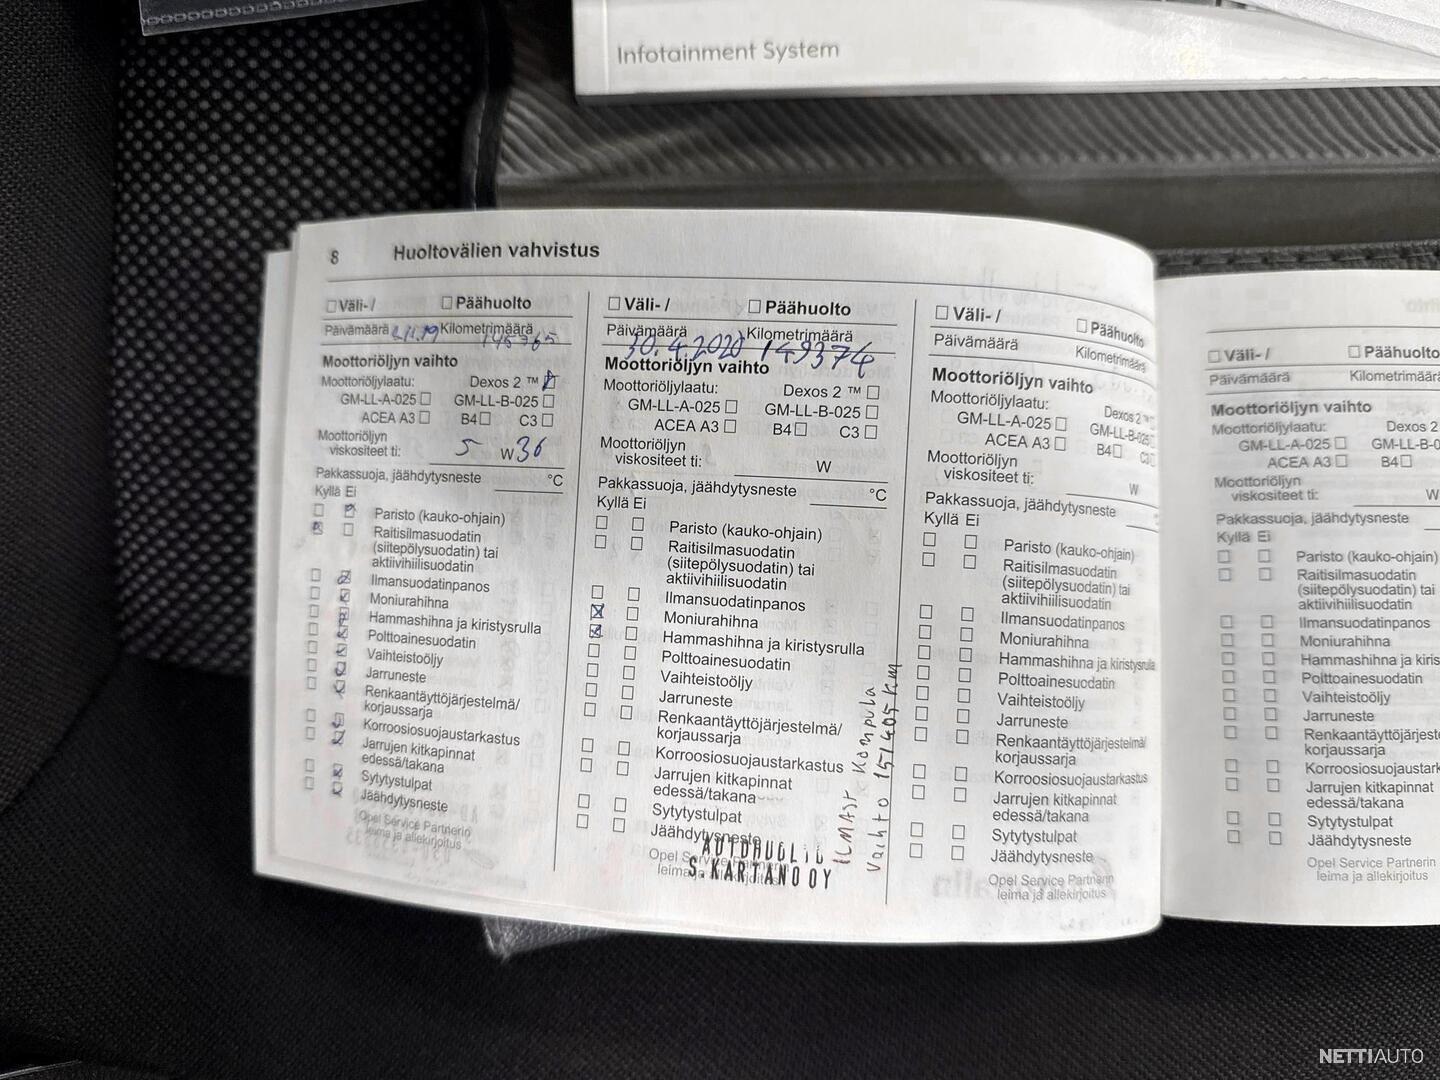 Infotainment System
8 Huoltovälien vahvistus
☐ Väli- / ☐ Päähuolto
Päivämäärä 2.11.19 Kilometrimäärä
Moottoriöljyn vaihto
Moottoriöljylaatu: Dexos 2 ™ ☒
GM-LL-A-025 ☐ GM-LL-B-025 ☐
ACEA A3 ☐ B4 ☐ C3 ☐
Moottoriöljyn
viskositeet ti: 5 W 30
Pakkassuoja, jäähdytysneste °C
Kyllä Ei
☐ ☒ Paristo (kauko-ohjain)
☒ ☐ Raitisilmasuodatin
(siitepölysuodatin) tai
aktiivihiilisuodatin
☐ ☒ Ilmansuodatinpanos
☐ ☒ Moniurahihna
☐ ☒ Hammashihna ja kiristysrulla
☐ ☒ Polttoainesuodatin
☐ ☒ Vaihteistoöljy
☐ ☒ Jarruneste
☐ ☒ Renkaantäyttöjärjestelmä/
korjaussarja
☐ ☒ Korroosiosuojaustarkastus
☐ ☒ Jarrujen kitkapinnat
edessä/takana
☐ ☒ Sytytystulpat
☐ ☒ Jäähdytysneste
Opel Service Partnerin
leima ja allekirjoitus
☐ Väli- / ☐ Päähuolto
Päivämäärä Kilometrimäärä
30.4.2020 149374
Moottoriöljyn vaihto
Moottoriöljylaatu: Dexos 2 ™ ☐
GM-LL-A-025 ☐ GM-LL-B-025 ☐
ACEA A3 ☐ B4 ☐ C3 ☐
Moottoriöljyn
viskositeet ti: W
Pakkassuoja, jäähdytysneste °C
Kyllä Ei
☐ ☐ Paristo (kauko-ohjain)
☐ ☐ Raitisilmasuodatin
(siitepölysuodatin) tai
aktiivihiilisuodatin
☐ ☐ Ilmansuodatinpanos
☒ ☐ Moniurahihna
☒ ☐ Hammashihna ja kiristysrulla
☐ ☐ Polttoainesuodatin
☐ ☐ Vaihteistoöljy
☐ ☐ Jarruneste
☐ ☐ Renkaantäyttöjärjestelmä/
korjaussarja
☐ ☐ Korroosiosuojaustarkastus
☐ ☐ Jarrujen kitkapinnat
edessä/takana
☐ ☐ Sytytystulpat
☐ ☐ Jäähdytysneste
Opel Service Partnerin
leima ja allekirjoitus
AUTOHUOLTO
S KARTANO OY
ILMAST Kompula
Vaihto 151405 km
☐ Väli- / ☐ Päähuolto
Päivämäärä Kilometrimäärä
Moottoriöljyn vaihto
Moottoriöljylaatu: Dexos 2
GM-LL-A-025 ☐ GM-LL-B-025
ACEA A3 ☐ B4 ☐ C3
Moottoriöljyn
viskositeet ti: W
Pakkassuoja, jäähdytysneste
Kyllä Ei
☐ ☐ Paristo (kauko-ohjain)
☐ ☐ Raitisilmasuodatin
(siitepölysuodatin) tai
aktiivihiilisuodatin
☐ ☐ Ilmansuodatinpanos
☐ ☐ Moniurahihna
☐ ☐ Hammashihna ja kiristysrulla
☐ ☐ Polttoainesuodatin
☐ ☐ Vaihteistoöljy
☐ ☐ Jarruneste
☐ ☐ Renkaantäyttöjärjestelmä/
korjaussarja
☐ ☐ Korroosiosuojaustarkastus
☐ ☐ Jarrujen kitkapinnat
edessä/takana
☐ ☐ Sytytystulpat
☐ ☐ Jäähdytysneste
Opel Service Partnerin
leima ja allekirjoitus
☐ Väli- / ☐ Päähuolto
Päivämäärä Kilometrimäärä
Moottoriöljyn vaihto
Moottoriöljylaatu: Dexos 2
GM-LL-A-025 ☐ GM-LL-B-0
ACEA A3 ☐ B4 ☐
Moottoriöljyn
viskositeet ti: W
Pakkassuoja, jäähdytysneste
Kyllä Ei
☐ ☐ Paristo (kauko-ohjain)
☐ ☐ Raitisilmasuodatin
(siitepölysuodatin) tai
aktiivihiilisuodatin
☐ ☐ Ilmansuodatinpanos
☐ ☐ Moniurahihna
☐ ☐ Hammashihna ja kiris
☐ ☐ Polttoainesuodatin
☐ ☐ Vaihteistoöljy
☐ ☐ Jarruneste
☐ ☐ Renkaantäyttöjärjeste
korjaussarja
☐ ☐ Korroosiosuojaustark
☐ ☐ Jarrujen kitkapinnat
edessä/takana
☐ ☐ Sytytystulpat
☐ ☐ Jäähdytysneste
Opel Service Partnerin
leima ja allekirjoitus
NETTIAUTO